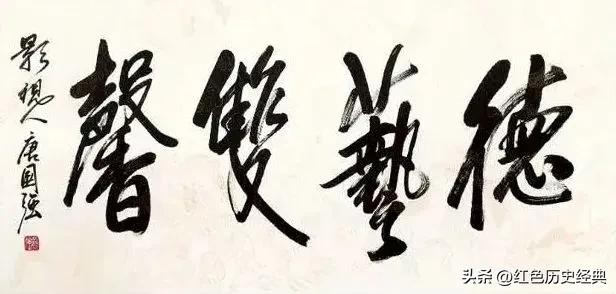 德藝雙馨
影視人 唐國強
头条 @红色历史经典